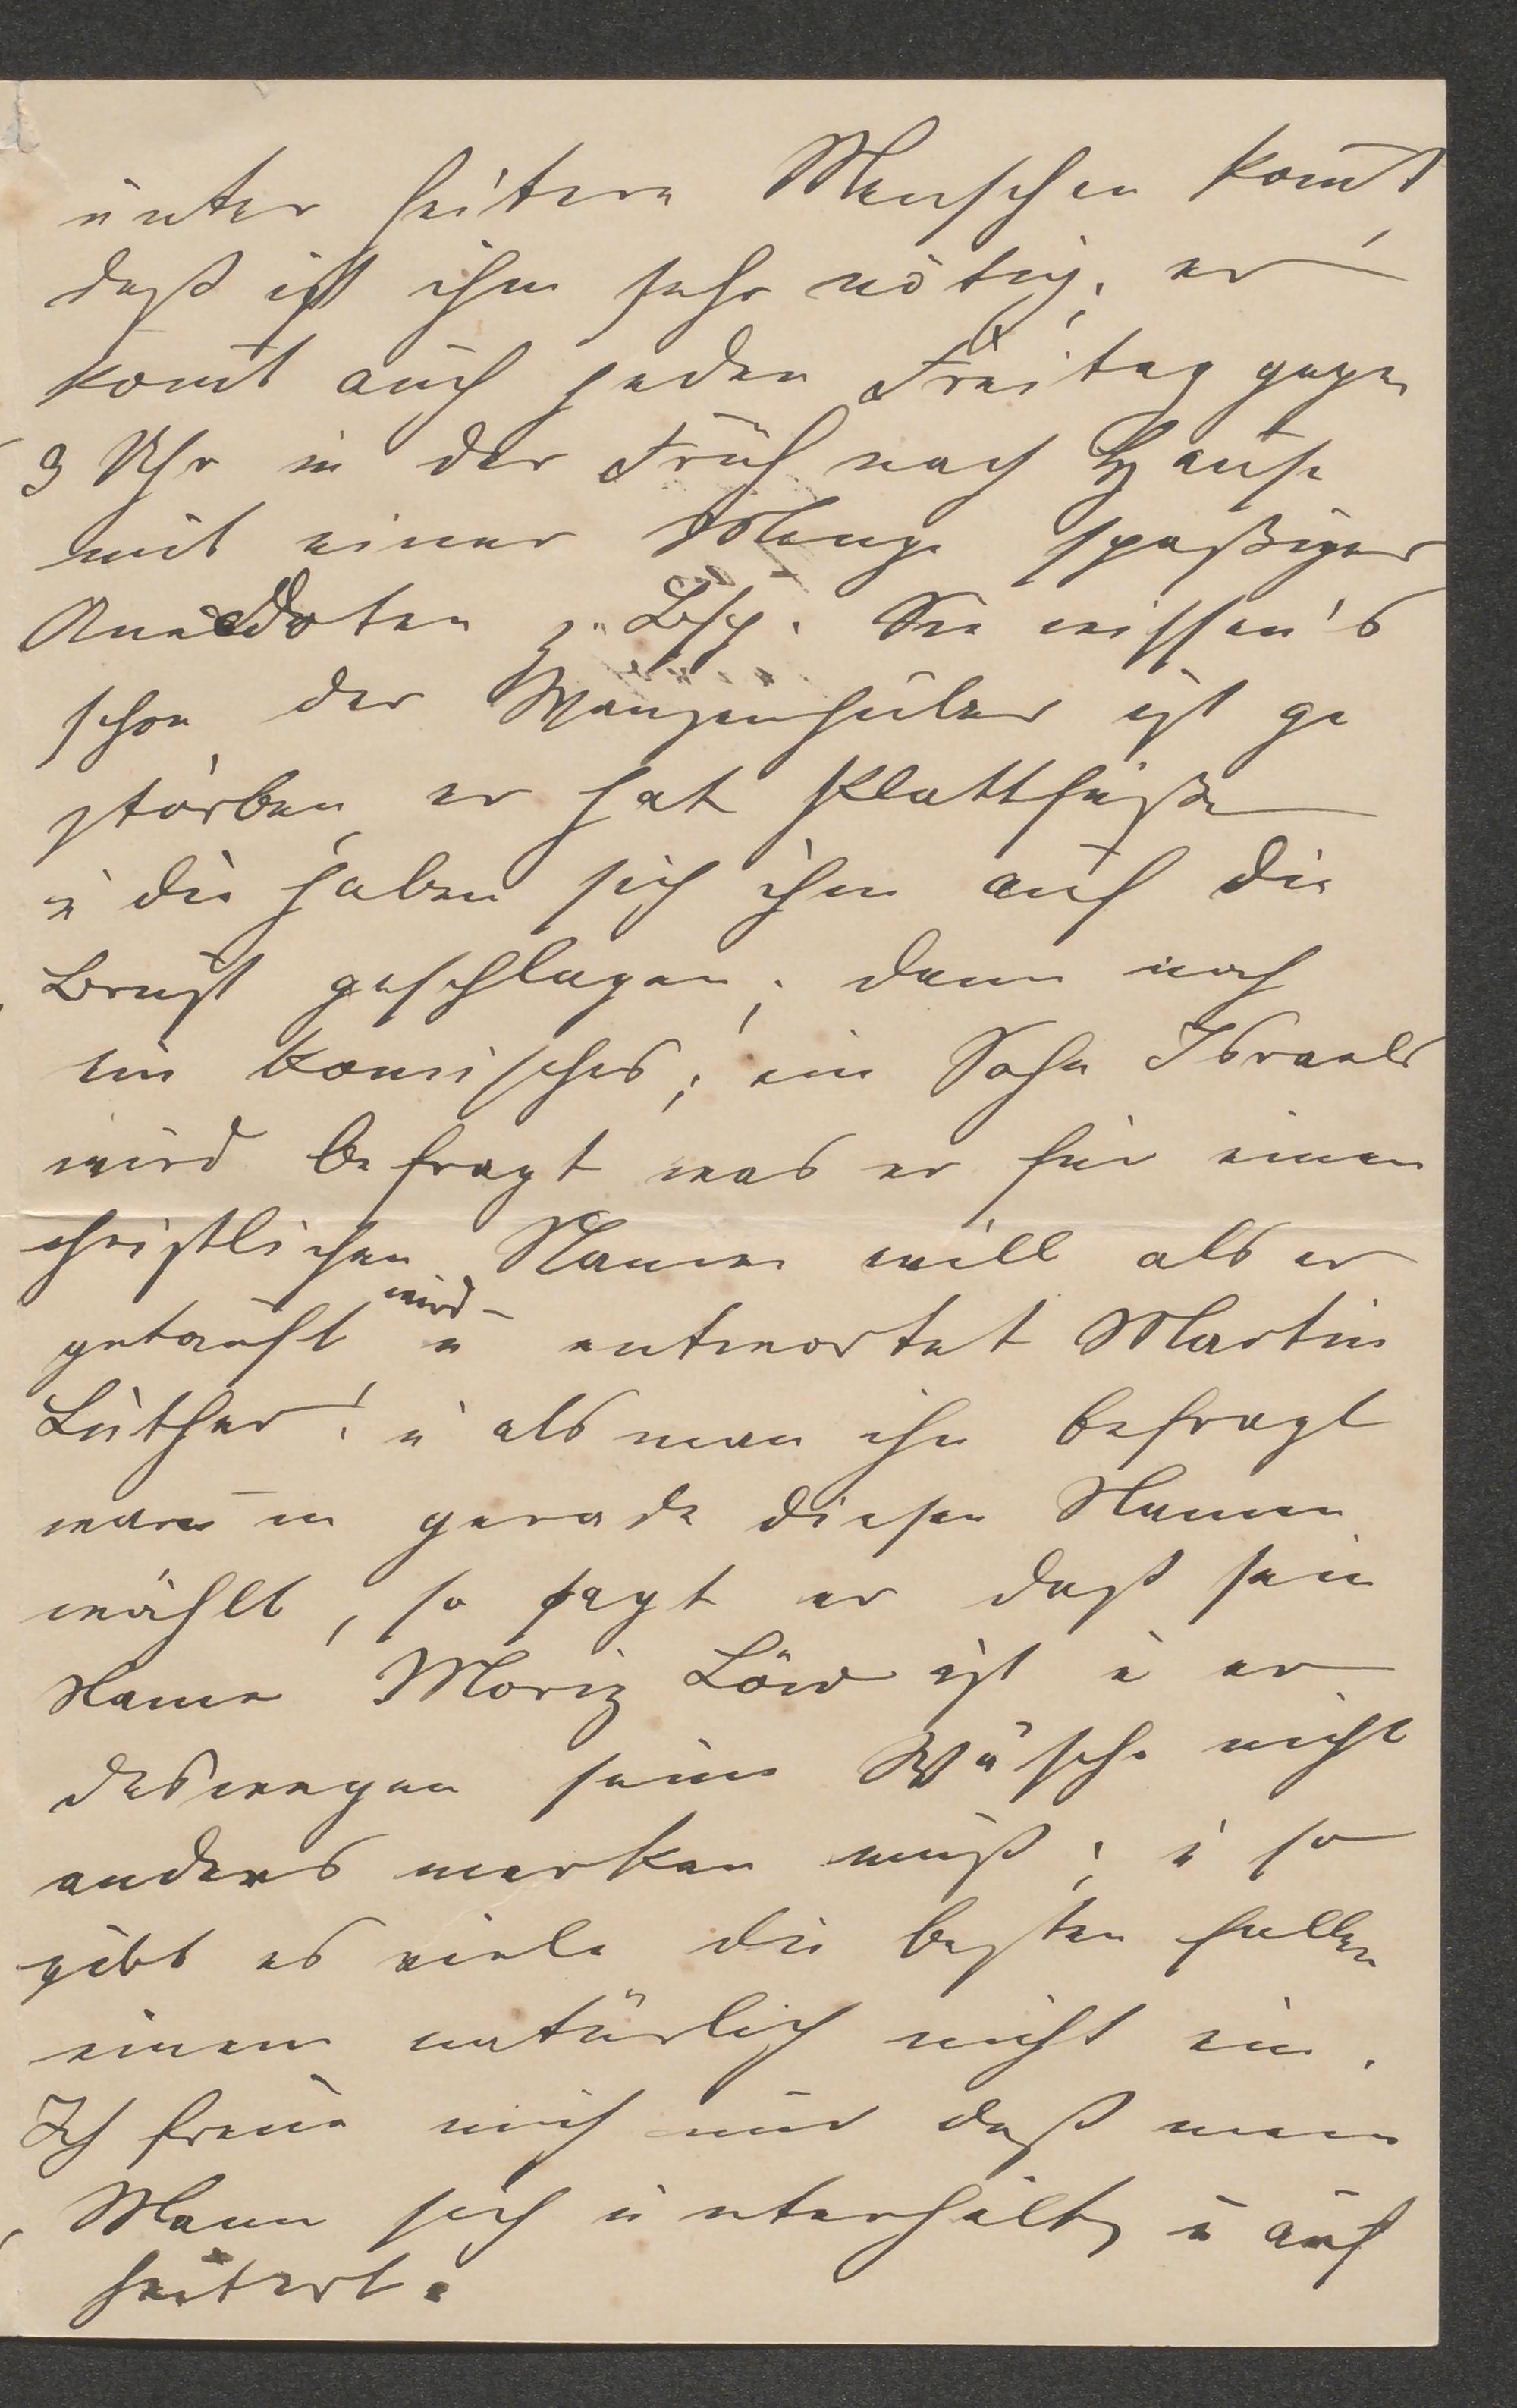 unter heitere Menschen kom̄t,
daß ist ihm sehr nötig; er
kom̄t auch jeden Freitag gegen
3 Uhr in der Früh nach Hause
mit einer Menge spaßiger
Anecdoten z. Bsp. Sie wissen's
schon, der ist ge
storben, er hat Plattfüße
u die haben sich ihm auf die
Brust geschlagen; dann noch
ein komisches; ein Sohn Israels
wird befragt was er für einen
christlichen Namen will als er
getauft wird u antwortet Martin
Luther! u als man ihn befragt
warum gerade diesen Namen
wählt, so sagt er daß sein
Name Moriz Löw ist u er
deswegen seine Wäsche nicht
anders merken muß; u so
gibt es viele die besten fallen
einem natürlich nicht ein.
Ich freue mich nur daß mein
Mann sich unterhält u auf
heitert.